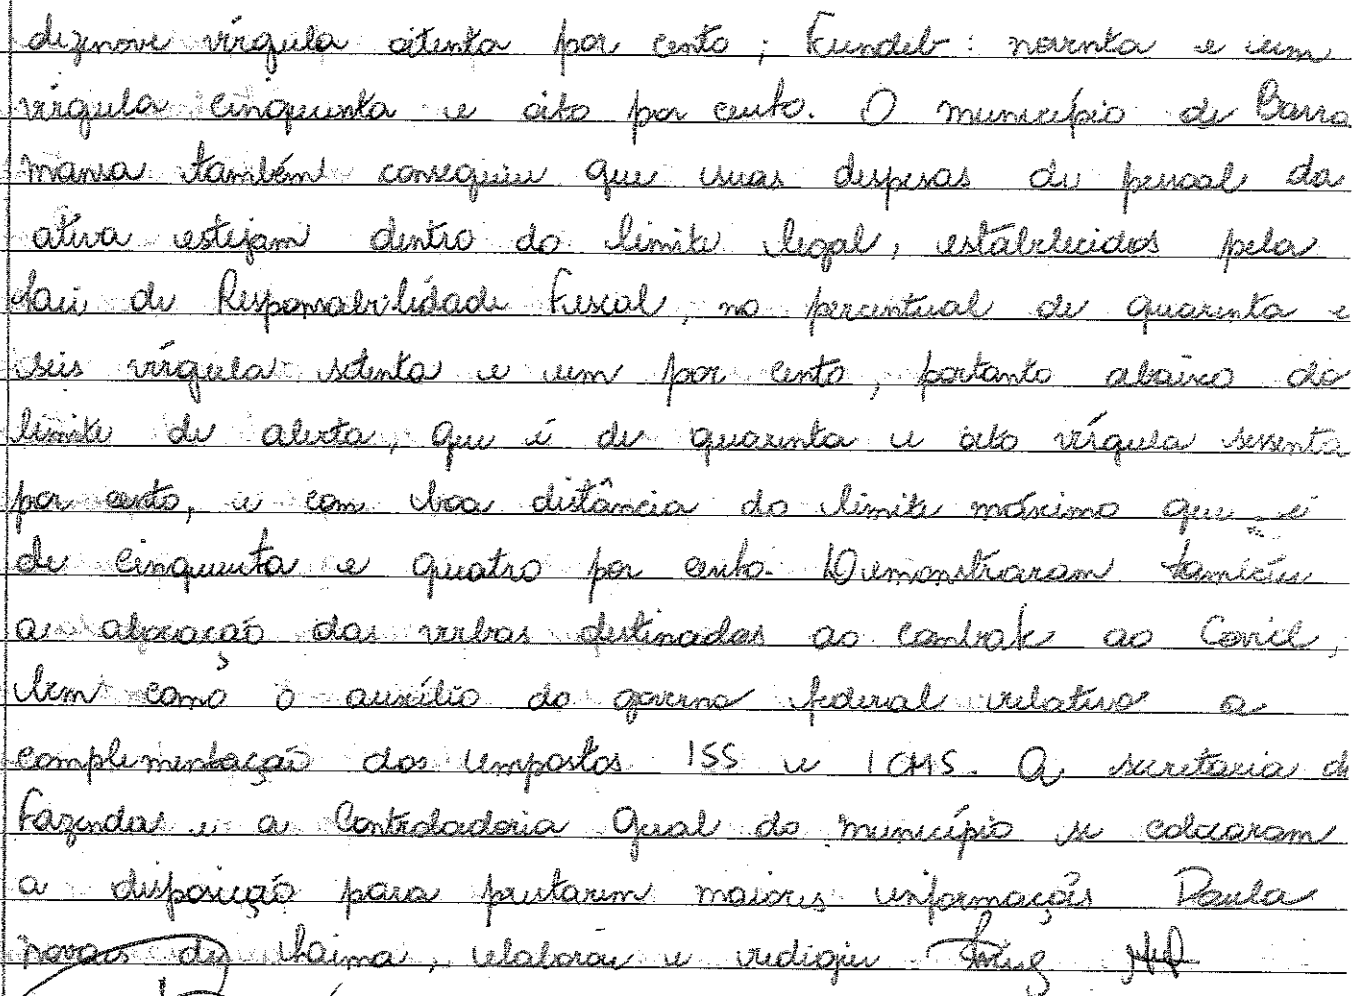 dezenove vírgula oitenta por cento; Fundeb: noventa e um
vírgula cinquenta e oito por cento. O município de Barra
mansa também conseguiu que suas despesas de pessoal da
ativa estejam dentro do limite legal, estabelecidos pela
Lei de Responsabilidade Fiscal, no percentual de quarenta e
seis vírgula setenta e um por cento, portanto abaixo do
limite de alerta, que é de quarenta e oito vírgula sessenta
por cento, e com boa distância do limite máximo que é
de cinquenta e quatro por cento. Demonstraram também
a alocação das verbas destinadas ao combate ao Covid,
bem como o auxílio do governo federal relativo a
complementação dos impostos ISS e ICMS. A secretaria de
Fazenda e a Controladoria Geral do município se colocaram
a disposição para prestarem maiores informações Paula
novaes de, elaborou e redigiu